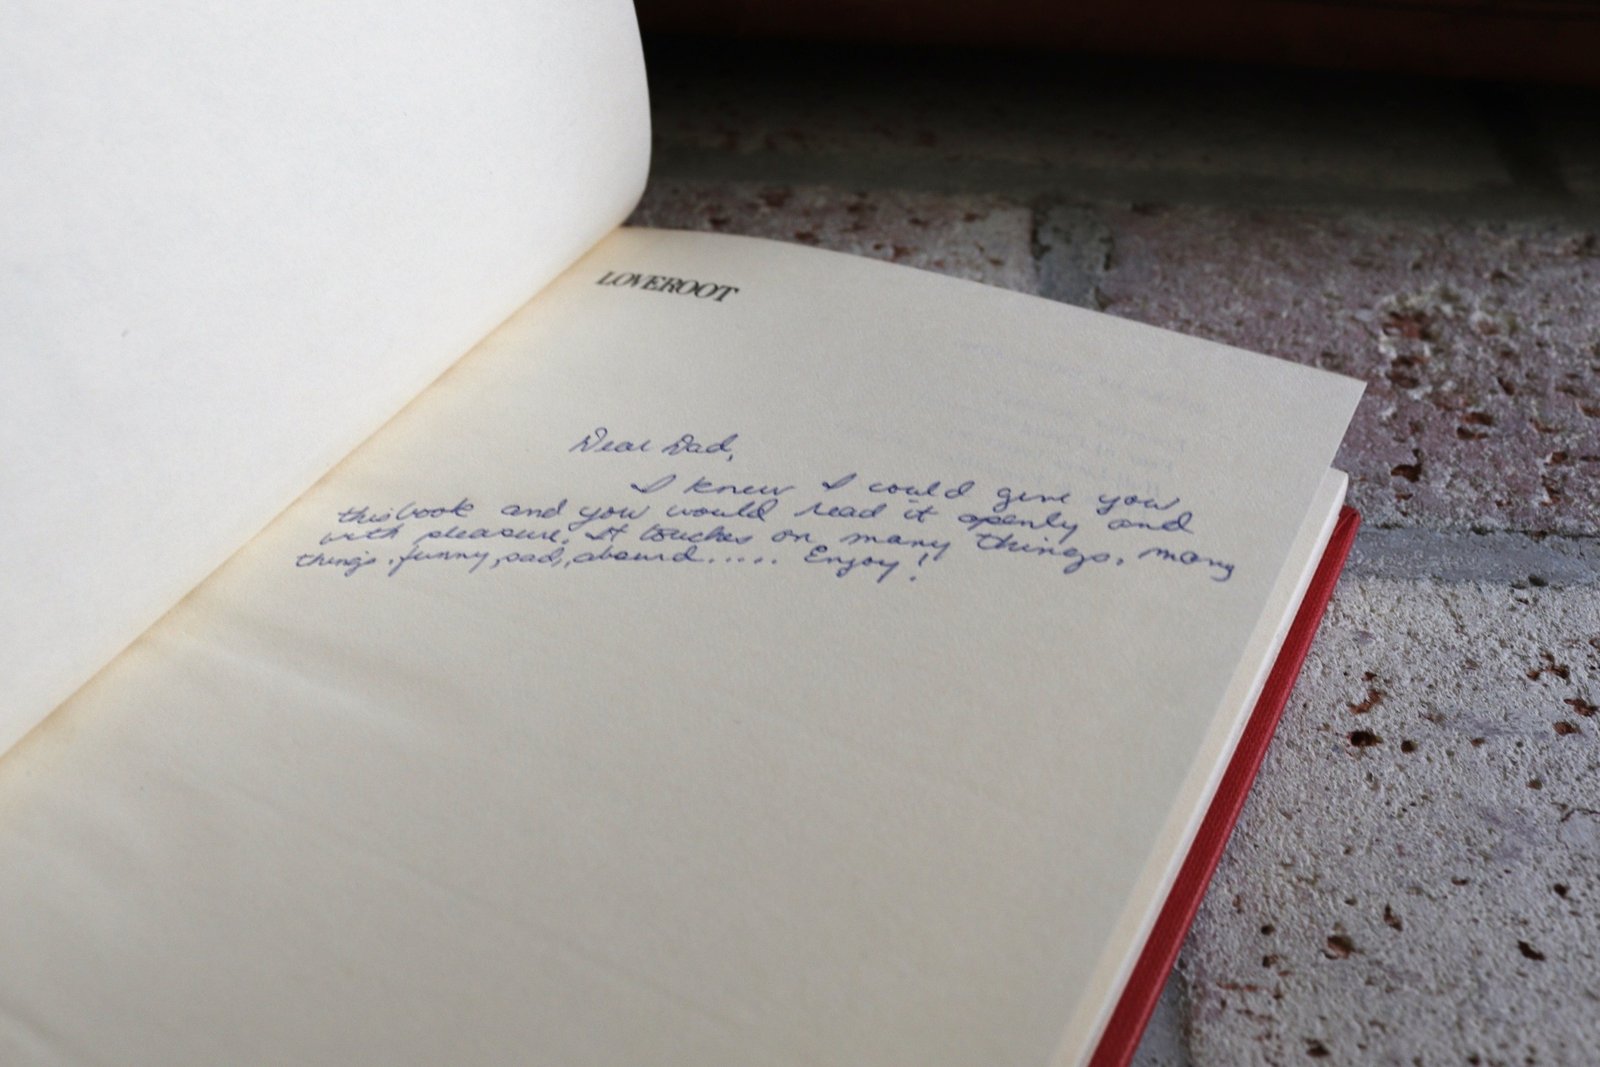 LOVEROOT
Dear Dad,
I knew I could give you
this book and you would read it openly and
with pleasure. It touches on many things, many
things, funny, sad, absurd..... Enjoy!